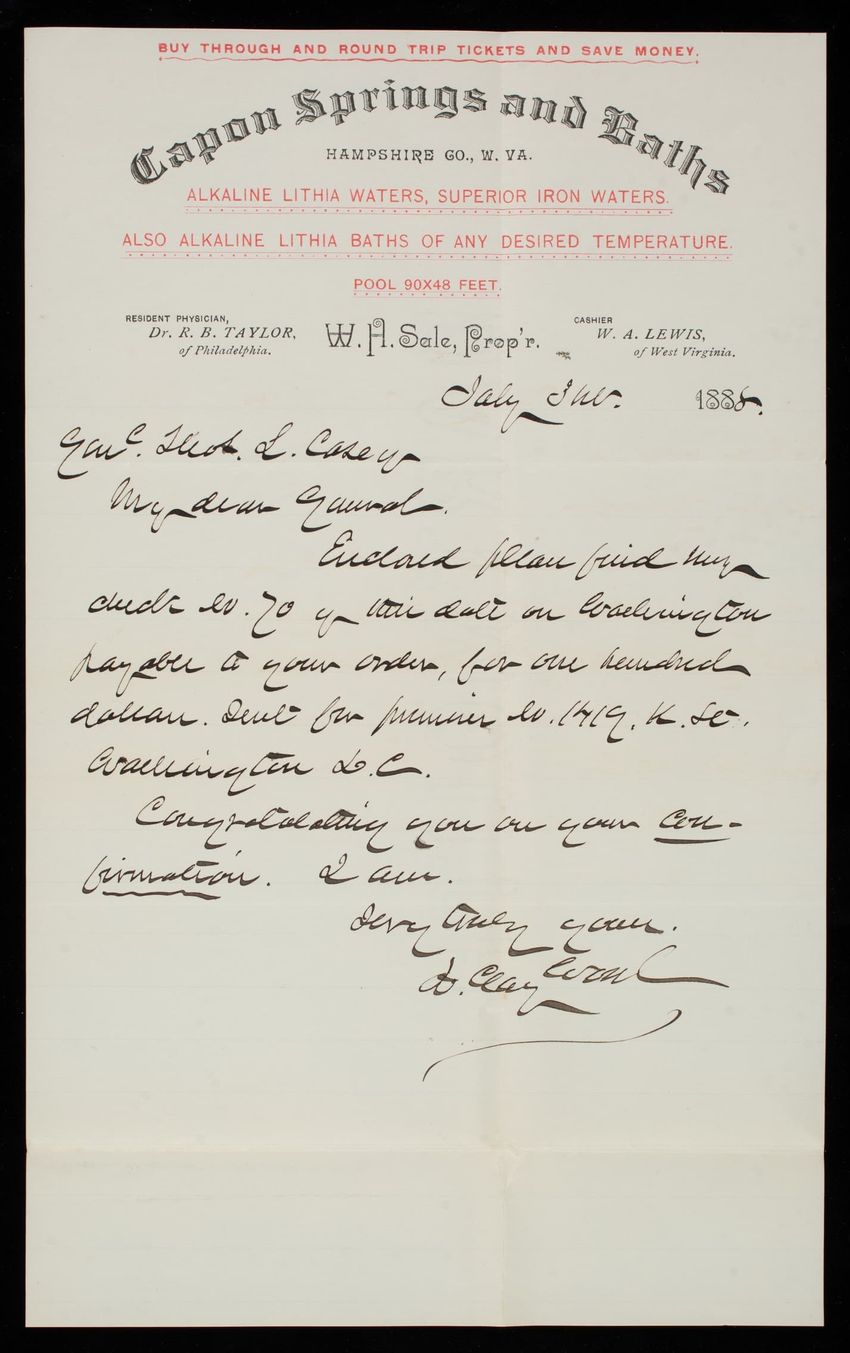 BUY THROUGH AND ROUND TRIP TICKETS AND SAVE MONEY.
Capon Springs and Baths
HAMPSHIRE CO., W. VA.
ALKALINE LITHIA WATERS, SUPERIOR IRON WATERS.
ALSO ALKALINE LITHIA BATHS OF ANY DESIRED TEMPERATURE.
POOL 90X48 FEET.
RESIDENT PHYSICIAN,
Dr. R. B. TAYLOR,
of Philadelphia.
W. H. Sale, Prop'r.
CASHIER
W. A. LEWIS,
of West Virginia.
July 1888.
Genl. Thos. L. Casey
My dear General.
Enclosed please find my
check No. 70 of this date on Washington
payable to your order, for one hundred
dollars. Rent for premises No. 1419. K. St.
Washington D.C.
Congratulating you on your con-
firmation. I am.
Very truly yours.
H. Clay Wood